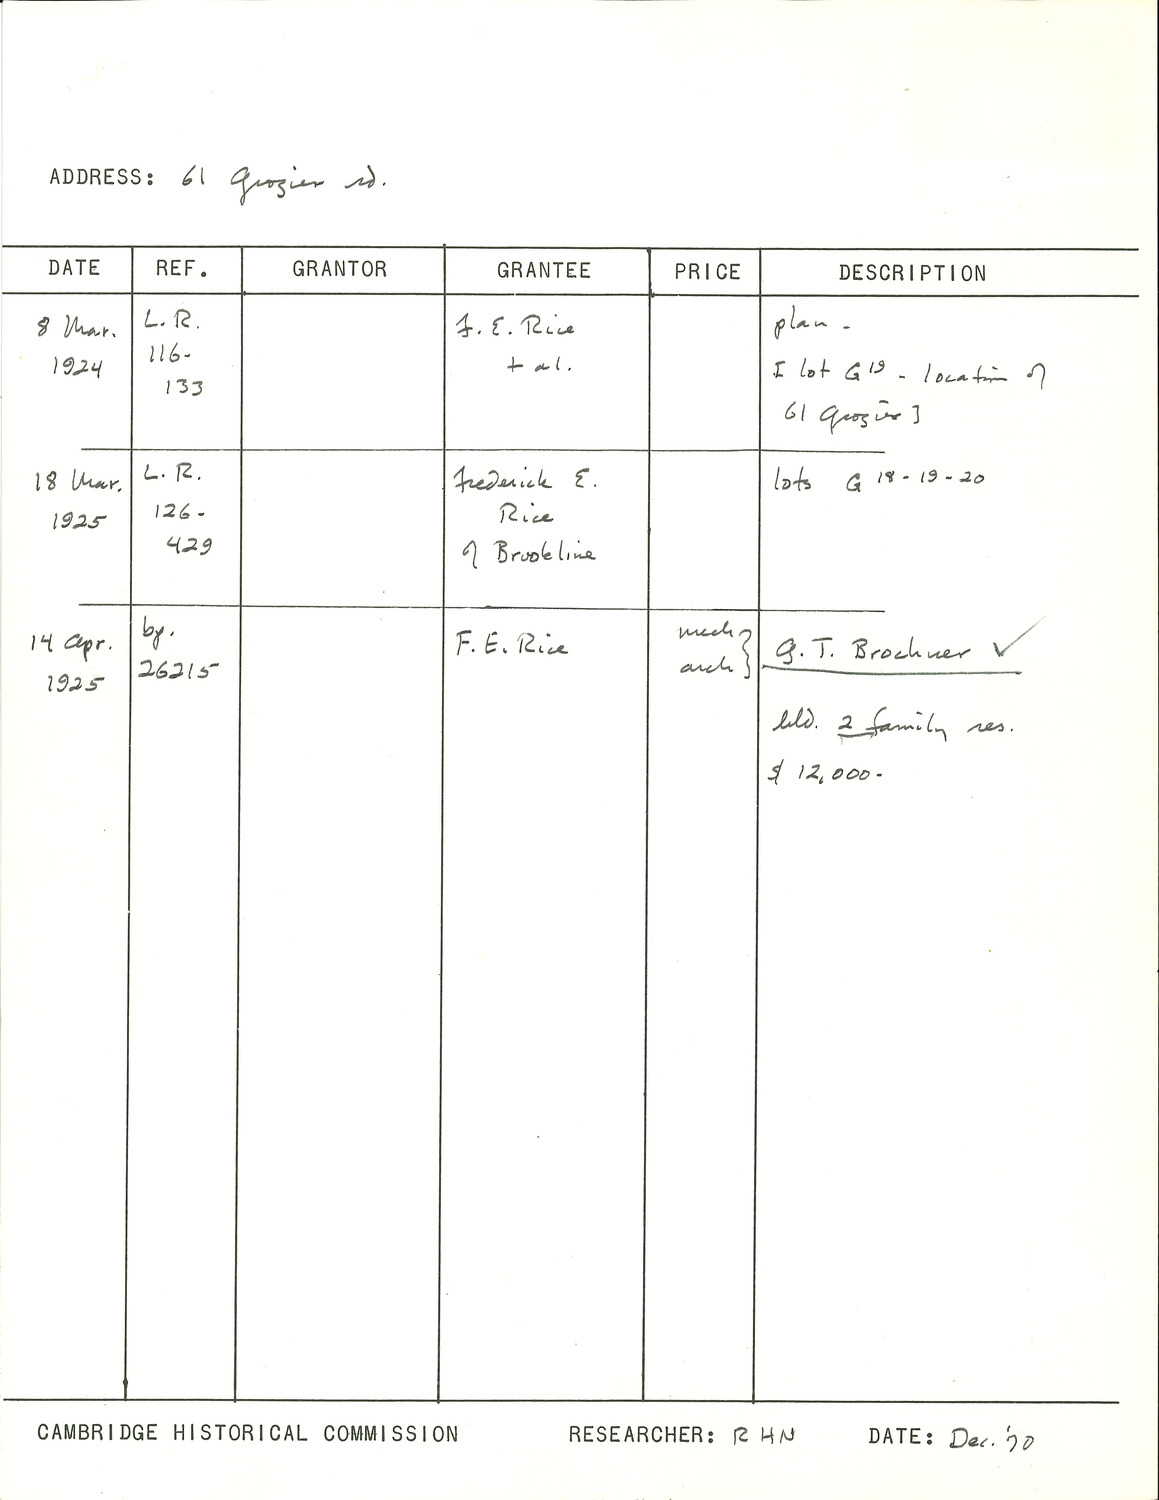 ADDRESS: 61 Grozier rd.
DATE REF. GRANTOR GRANTEE PRICE DESCRIPTION
8 Mar.
1924
L.R.
116-
133
F. E. Rice
+ al.
plan -
[ lot G19 - location of
61 Grozier ]
18 Mar.
1925
L.R.
126-
429
Frederick E.
Rice
of Brookline
lots G 18-19-20
14 Apr.
1925
bp.
26215
F. E. Rice
mech }
arch }
G. T. Brochner ✓
bld. 2 family res.
$ 12,000-
CAMBRIDGE HISTORICAL COMMISSION RESEARCHER: RHN DATE: Dec. '70